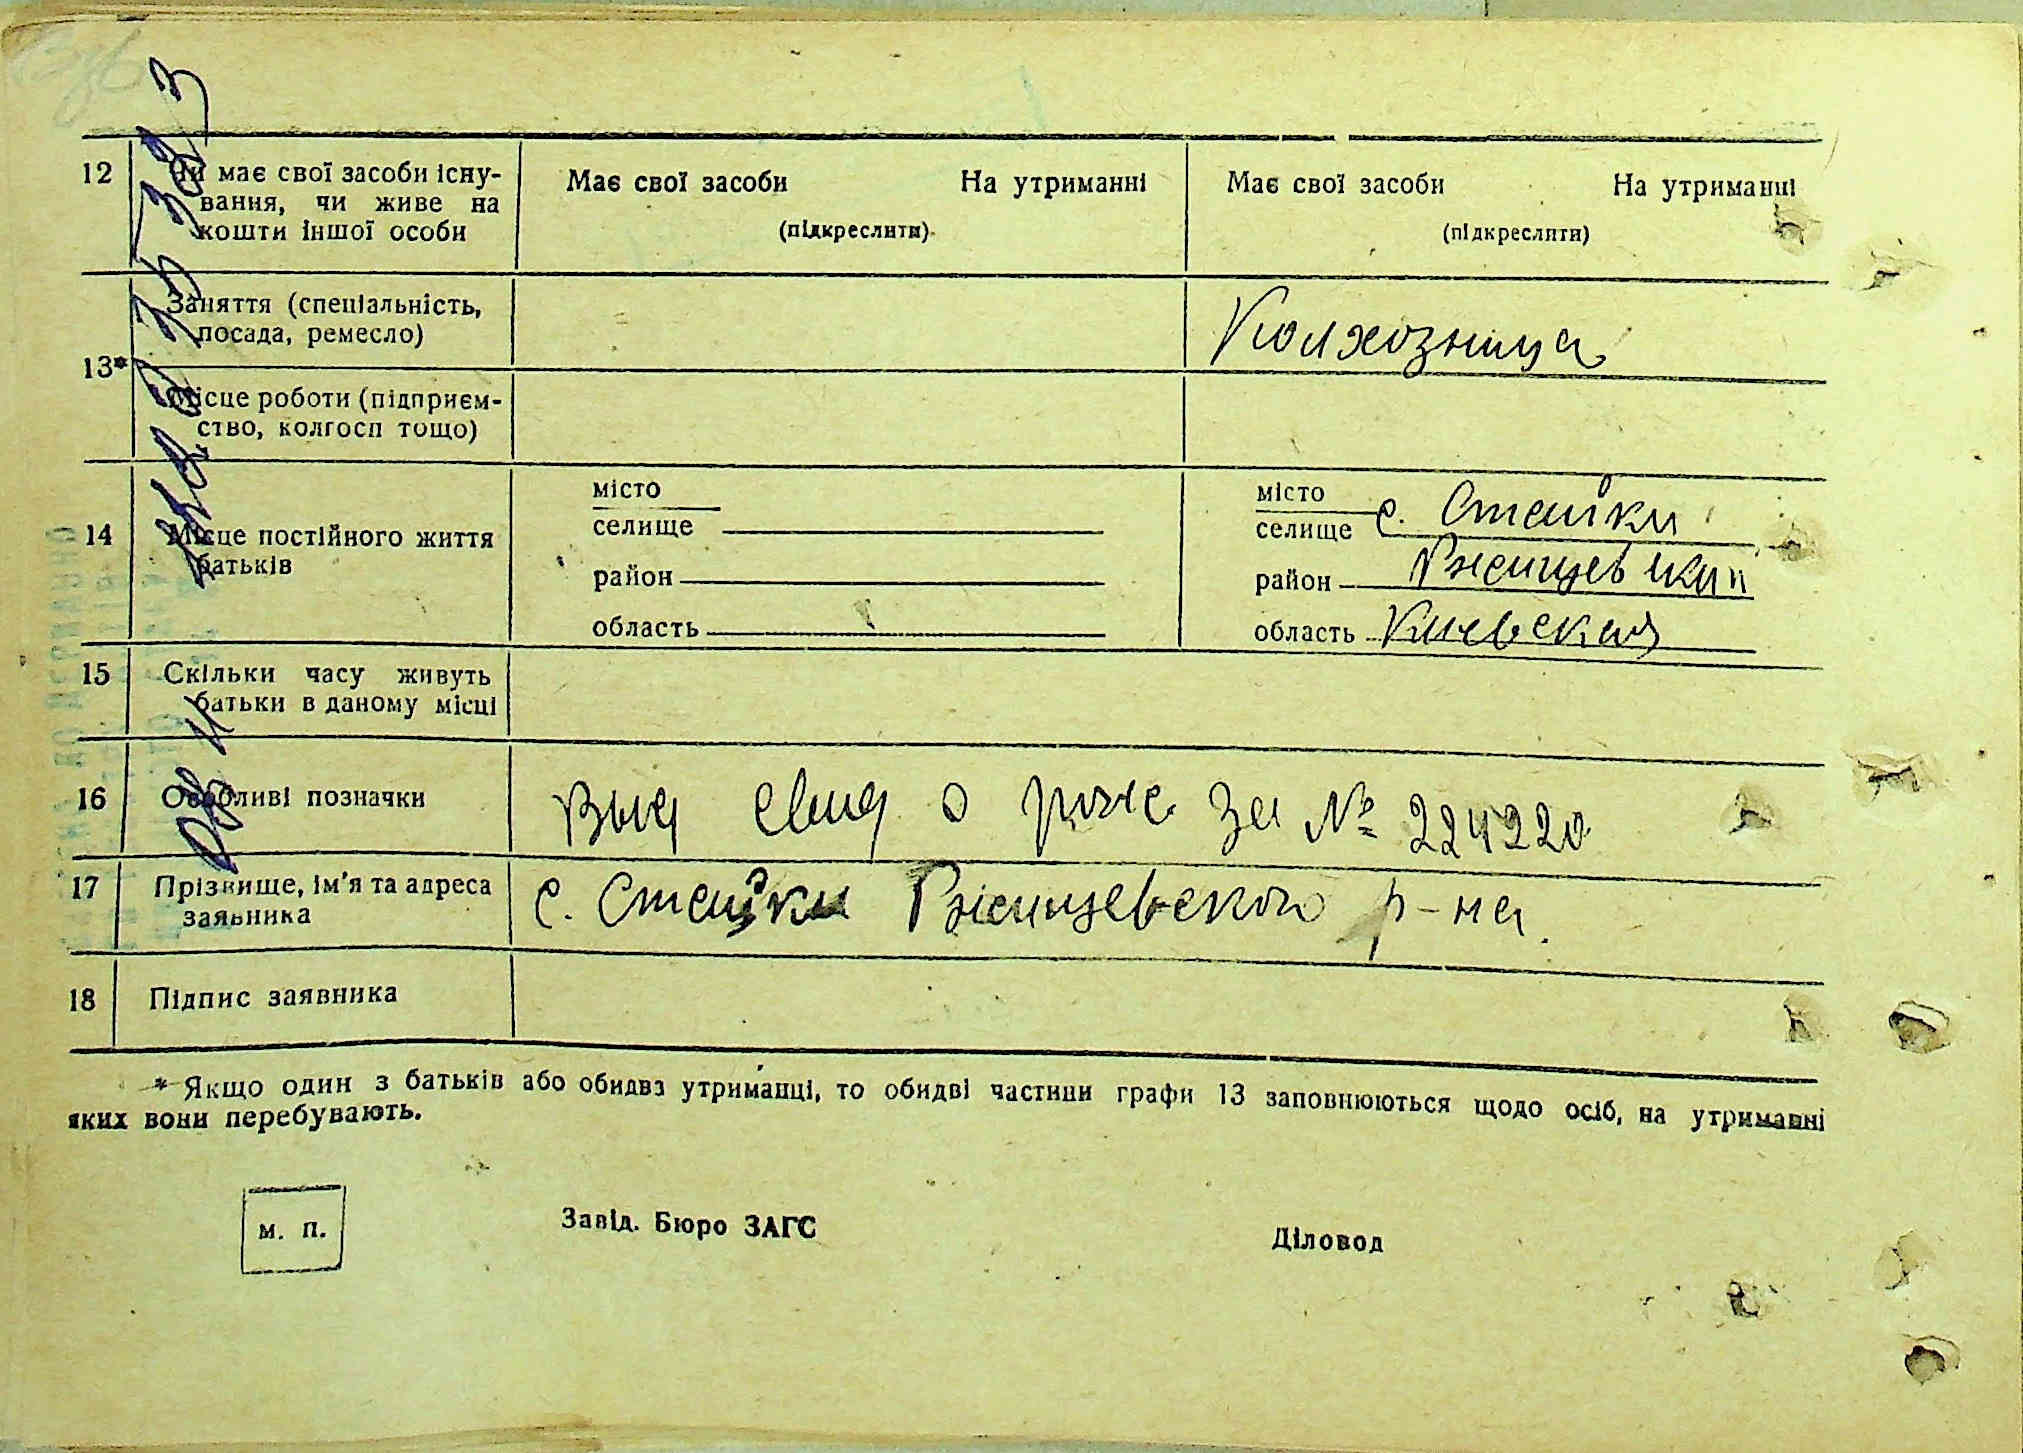 12 Чи має свої засоби існу-
вання, чи живе на
кошти іншої особи
Має свої засоби На утриманні
(підкреслити)
Має свої засоби На утриманні
(підкреслити)
13*
Заняття (спеціальність,
посада, ремесло)
Колхозница
Місце роботи (підприєм-
ство, колгосп тощо)
14 Місце постійного життя
батьків
місто
селище
район
область
місто
селище с. Стайки
район Ржищевский
область Киевская
15 Скільки часу живуть
батьки в даному місці
16 Особливі позначки
Выд свид о рожд за № 224220
17 Прізвище, ім'я та адреса
заявника
с. Стайки Ржищевского р-на.
18 Підпис заявника
* Якщо один з батьків або обидва утриманці, то обидві частини графи 13 заповнюються щодо осіб, на утриманні
яких вони перебувають.
М. П.
Завід. Бюро ЗАГС
Діловод